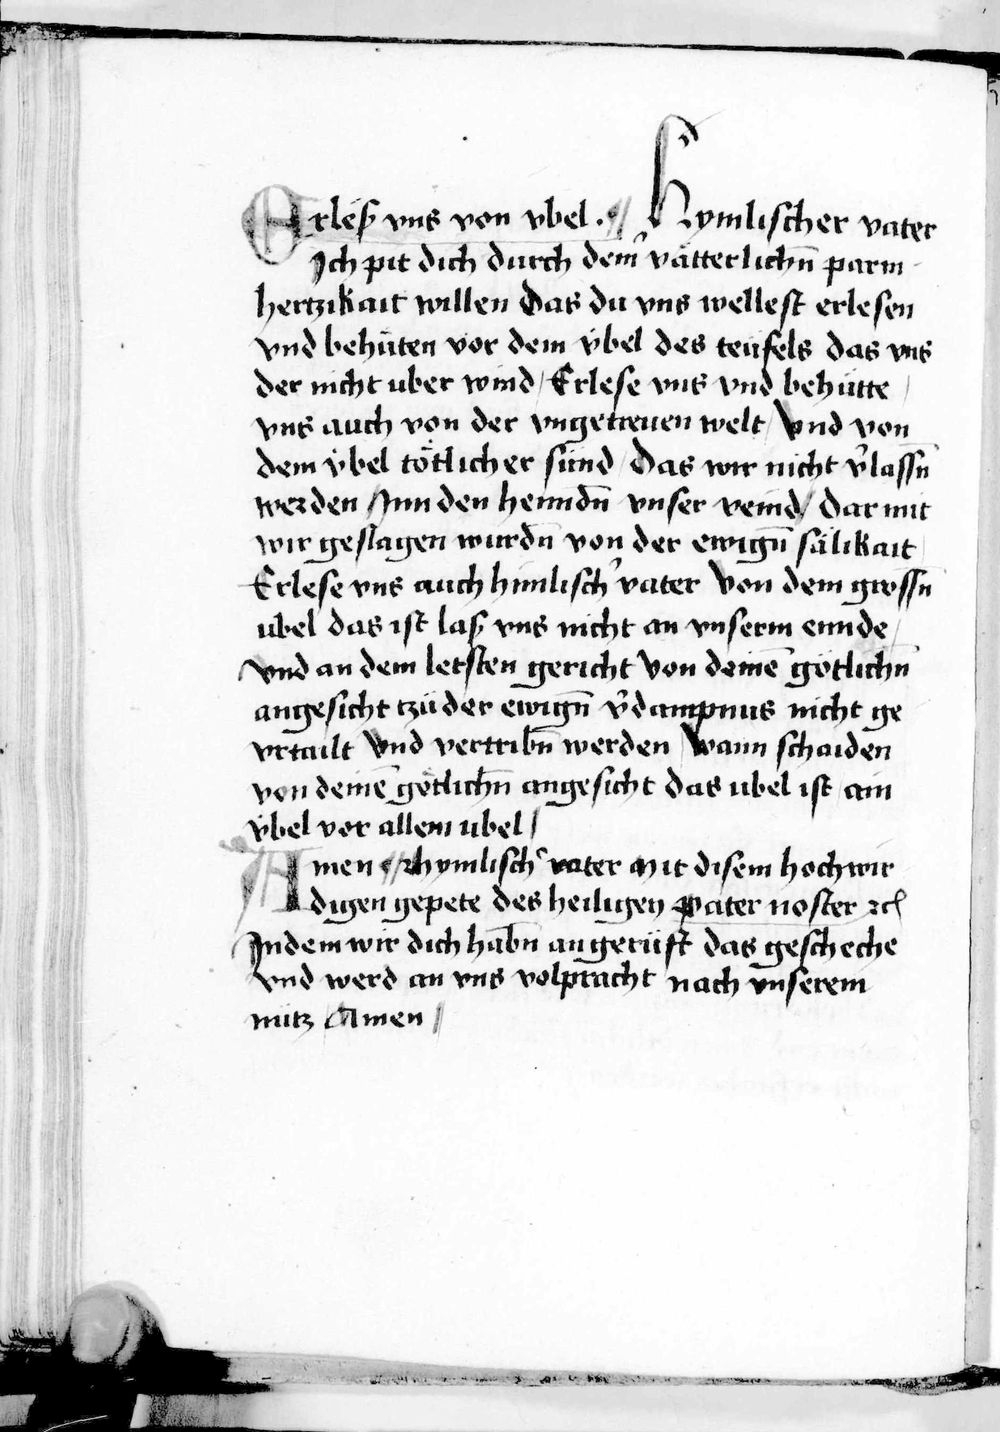 Erleß vns von vbel . // Hymlischer vater
Ich pit dich durch dem̅ vätterlichn̄ parm
hertzikait willen Das du vns wellest erlesen
vnd behüten vor dem v̈bel des teüfels das vns
der nicht uber wind / Erlese vns vnd behütte /
vns auch von der vngetreuen welt / Vnd von
dem v̈bel tötlicher sünd / Das wir nicht v̾lassn̄
werden / Inn den henndn̄ vnser veind / Dar mit
wir geslagen wurdn̄ von der ewign̄ sälikait /
Erlese vns auch himlisch̾ vater Von dem grossn̄
ubel das ist laß vns nicht an vnserm ennde /
Vnd an dem letsten gericht Von deinē götlichn̄
angesicht tzü der ewign̄ v̾dampnus nicht ge
vrtailt Vnd vertribn̄ werden / Wann schaiden
von deinē götlichn̄ angesicht das ubel ist / ain
v̈bel vor allem ubel /
Amen // hymlisch̾ vater Mit disem hochwir
digen gepete des heiligen Pater noster ⁊c̄
In dem wir dich habn̄ angerüft das gescheche
vnd werd an vns volpracht nach vnserem
nütz / Amen //